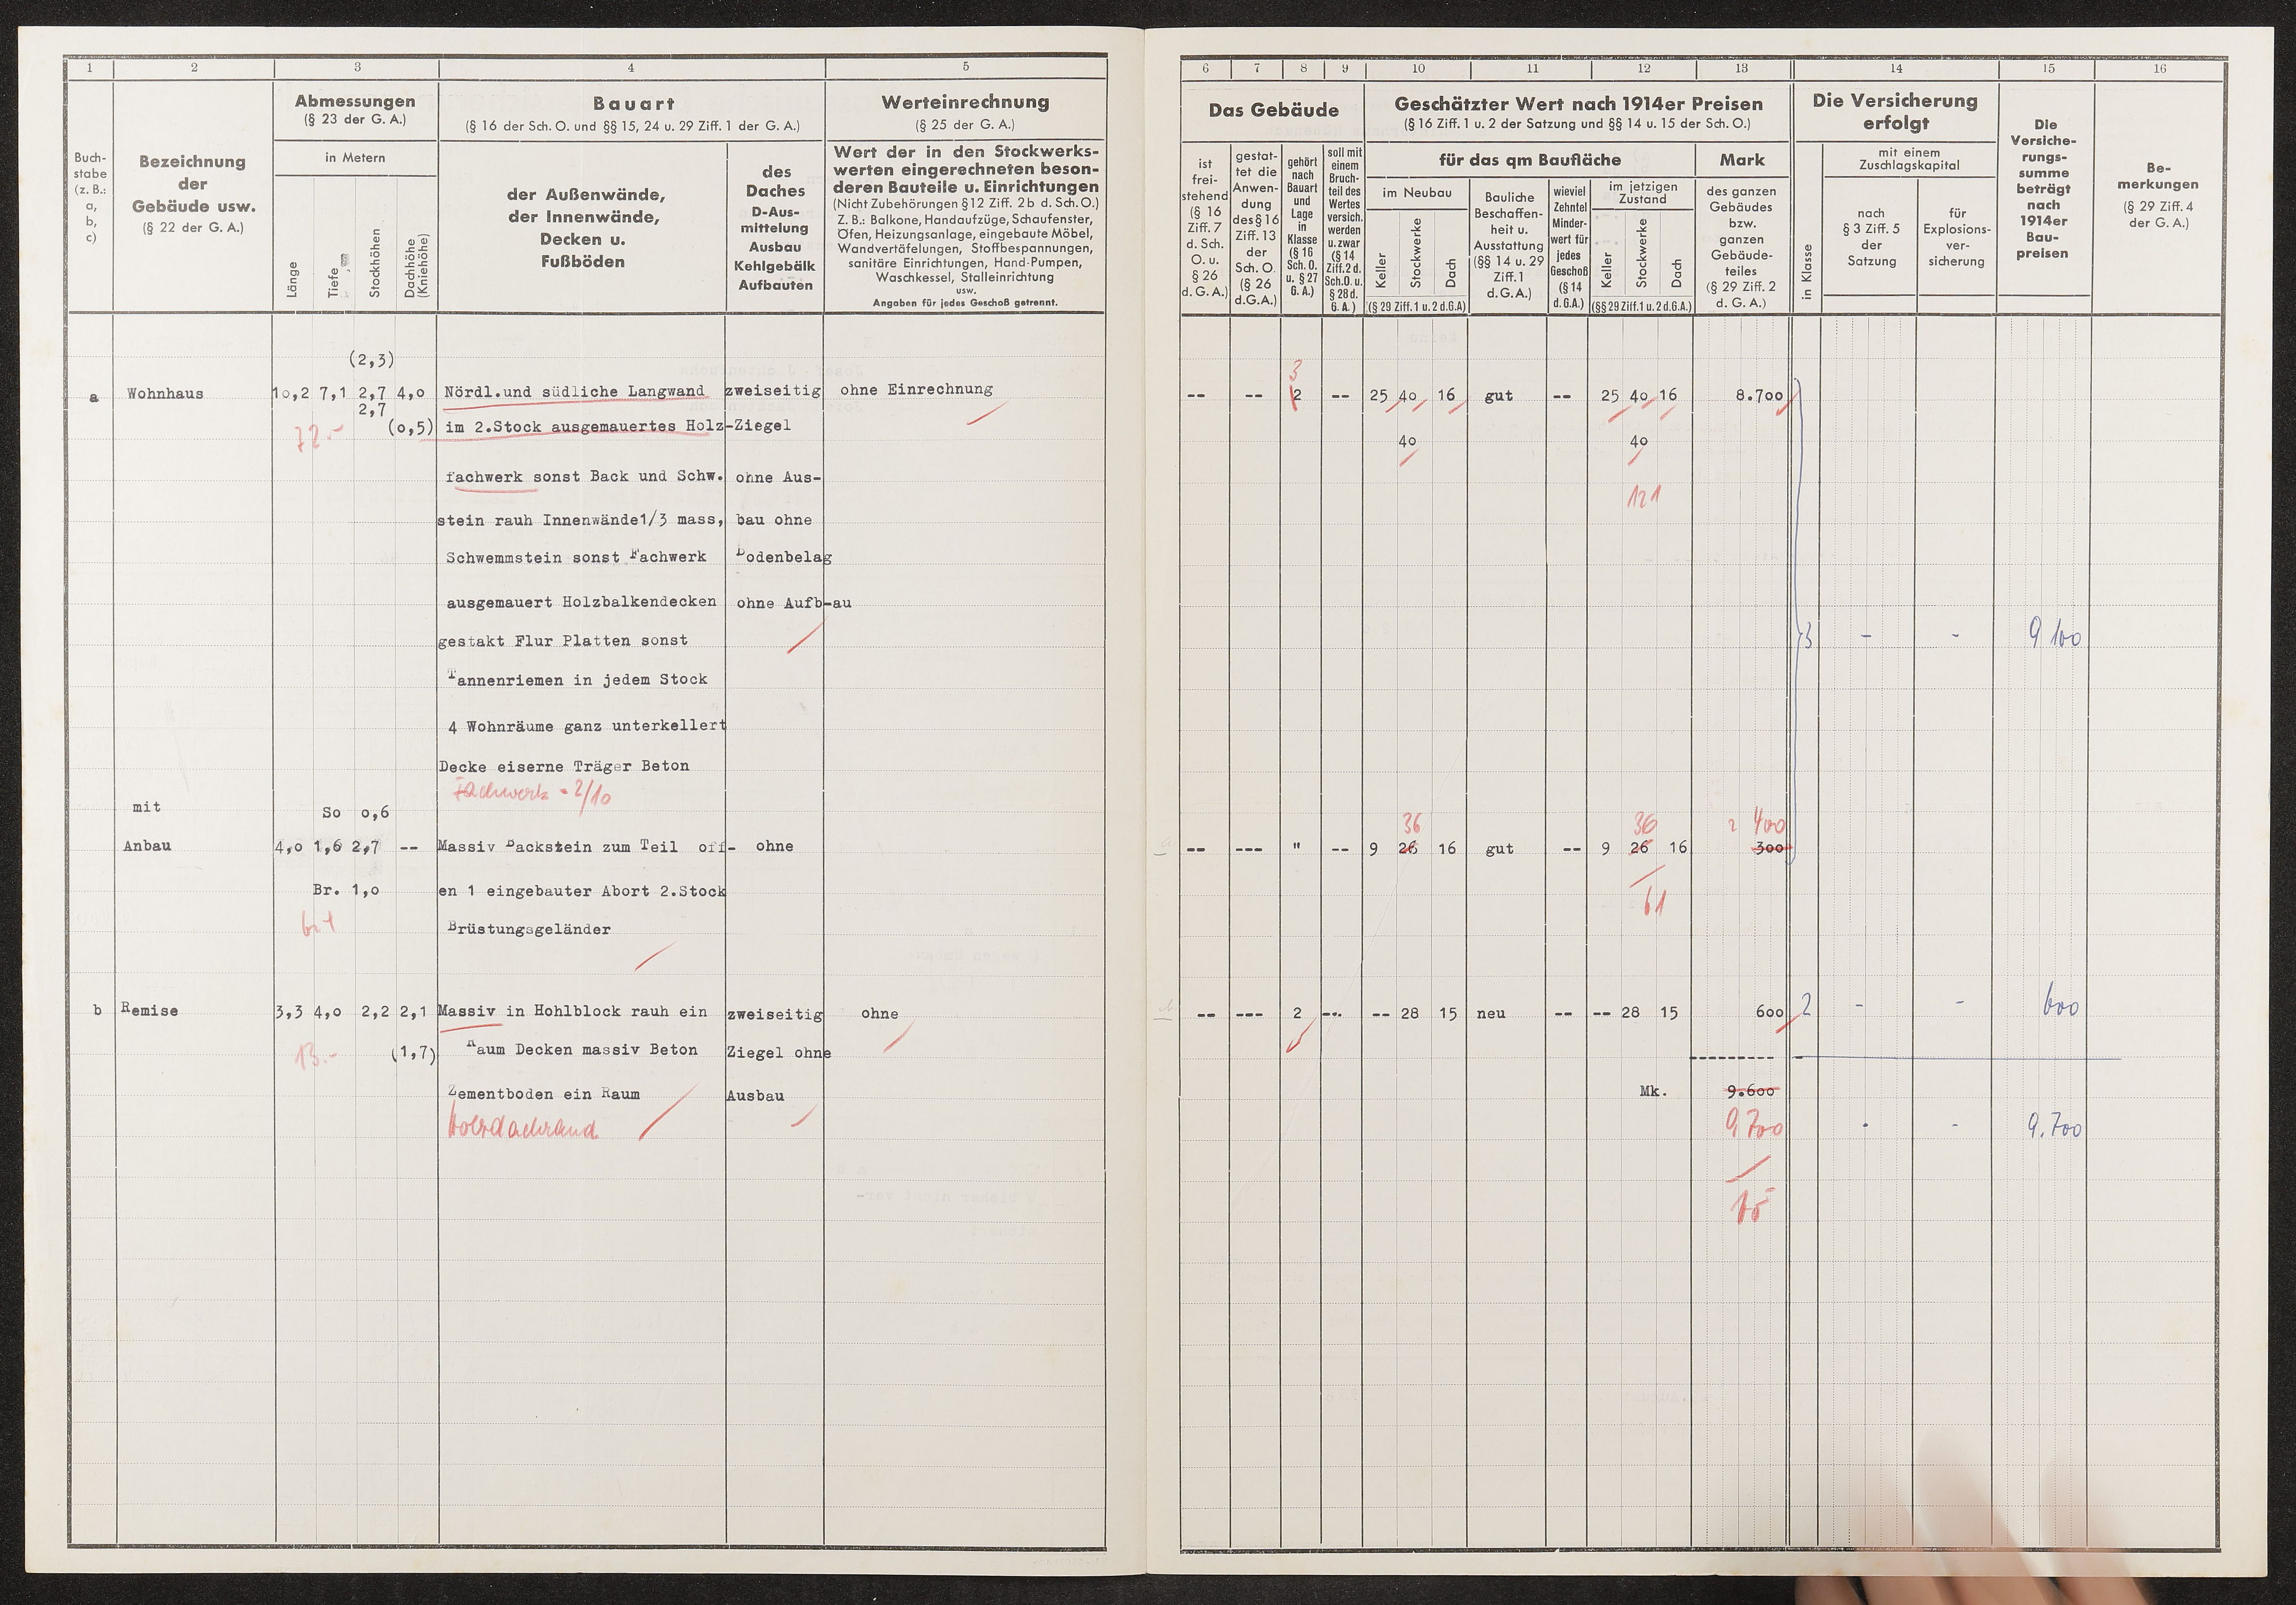 1 2 3 4 5
Buch-
stabe
(z. B.:
a,
b,
c)
Bezeichnung
der
Gebäude usw.
(§ 22 der G. A.)
Abmessungen
(§ 23 der G. A.)
in Metern
Länge
Tiefe
Stockhöhen
Dachhöhe
(Kniehöhe)
Bauart
(§ 16 der Sch. O. und §§ 15, 24 u. 29 Ziff. 1 der G. A.)
der Außenwände,
der Innenwände,
Decken u.
Fußböden
des
Daches
D-Aus-
mittelung
Ausbau
Kehlgebälk
Aufbauten
Werteinrechnung
(§ 25 der G. A.)
Wert der in den Stockwerks-
werten eingerechneten beson-
deren Bauteile u. Einrichtungen
(Nicht Zubehörungen §12 Ziff. 2b d. Sch. O.)
Z. B.: Balkone, Handaufzüge, Schaufenster,
Öfen, Heizungsanlage, eingebaute Möbel,
Wandvertäfelungen, Stoffbespannungen,
sanitäre Einrichtungen, Hand-Pumpen,
Waschkessel, Stalleinrichtung
usw.
Angaben für jedes Geschoß getrennt.
(2,3)
a Wohnhaus 10,2 7,1 2,7 4,0 Nördl.und südliche Langwand zweiseitig ohne Einrechnung
2,7
72.- (0,5) im 2.Stock ausgemauertes Holz-Ziegel
fachwerk sonst Back und Schw. ohne Aus-
stein rauh Innenwände1/3 mass, bau ohne
Schwemmstein sonst Fachwerk Bodenbelag
ausgemauert Holzbalkendecken ohne Aufb-au
gestakt Flur Platten sonst
Tannenriemen in jedem Stock
4 Wohnräume ganz unterkellert
Decke eiserne Träger Beton
Fachwerk = 2/10
mit So 0,6
Anbau 4,0 1,6 2,7 -- Massiv Backstein zum Teil off- ohne
Br. 1,0 en 1 eingebauter Abort 2.Stock
Brüstungsgeländer
b Remise 3,3 4,0 2,2 2,1 Massiv in Hohlblock rauh ein zweiseitig ohne
13.- (1,7) Raum Decken massiv Beton Ziegel ohne
Zementboden ein Raum Ausbau
Holzdachrand
6 7 8 9 10 11 12 13 14 15 16
Das Gebäude
ist
frei-
stehend
(§ 16
Ziff. 7
d. Sch.
O. u.
§ 26
d. G. A.)
gestat-
tet die
Anwen-
dung
des § 16
Ziff. 13
der
Sch. O.
(§ 26
d.G.A.)
gehört
nach
Bauart
und
Lage
in
Klasse
(§ 16
Sch. O.
u. § 27
G. A.)
soll mit
einem
Bruch-
teil des
Wertes
versich.
werden
u. zwar
(§ 14
Ziff. 2 d.
Sch.O. u.
§ 28 d.
G. A.)
Geschätzter Wert nach 1914er Preisen
(§ 16 Ziff. 1 u. 2 der Satzung und §§ 14 u. 15 der Sch. O.)
für das qm Baufläche
Mark
im Neubau
Keller
Stockwerke
Dach
(§ 29 Ziff. 1 u. 2 d.G.A)
Bauliche
Beschaffen-
heit u.
Ausstattung
(§§ 14 u. 29
Ziff. 1
d. G. A.)
wieviel
Zehntel
Minder-
wert für
jedes
Geschoß
(§ 14
d. G.A.)
im jetzigen
Zustand
Keller
Stockwerke
Dach
(§§ 29 Ziff. 1 u. 2 d.G.A.)
des ganzen
Gebäudes
bzw.
ganzen
Gebäude-
teiles
(§ 29 Ziff. 2
d. G. A.)
Die Versicherung
erfolgt
in Klasse
mit einem
Zuschlagskapital
nach
§ 3 Ziff. 5
der
Satzung
für
Explosions-
ver-
sicherung
Die
Versiche-
rungs-
summe
beträgt
nach
1914er
Bau-
preisen
Be-
merkungen
(§ 29 Ziff. 4
der G. A.)
3
-- -- 2 -- 25 40 16 gut -- 25 40 16 8.700
40 40
121
3 - - 9 100
36 36 400
-- --- " -- 9 26 16 gut -- 9 26 16 300
61
-- --- 2 --. -- 28 15 neu -- -- 28 15 600 2 - - 600
Mk. 9.600
9700 - - 9.700